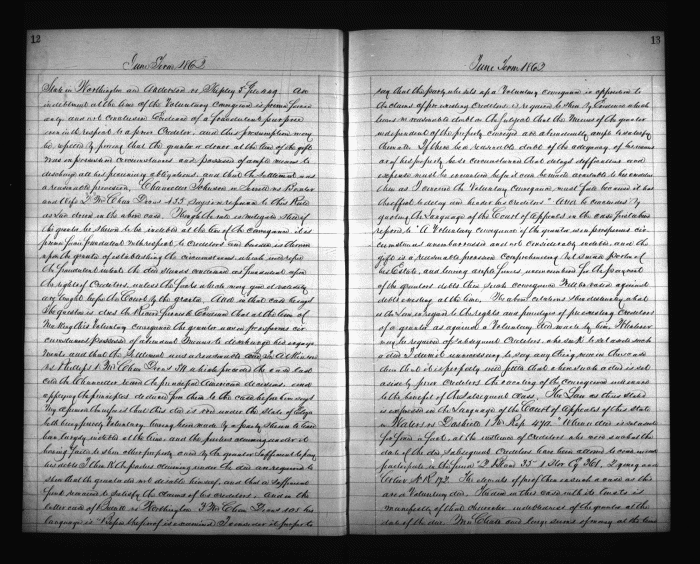 12
June Term 1862
State in Worthington and Anderson vs Shipley &
indebtment at the time of the Voluntary conveyance is prima facie
only and not conclusive Evidence of a fraudulent purpose
even with respect to a prior Creditor and this presumption may
be repelled by proving that the grantor or donor at the time of the gift
was in prosperous circumstances and possessed of ample means to
discharge all his pecuniary obligations and that the settlement was
a reasonable provision. Chancellor Johnson in
and Wife 2 Md Chan Decs 433 says in reference to this Rule
as laid down in the above case. Though the rule is
the grantor be shewn to be indebted at the time of the conveyance it is
prima facie fraudulent with respect to creditors and burden is thrown
upon the grantee of establishing the circumstances which
the fraudulent intent the deed stands condemned as fraudulent upon
the rights of Creditors unless the facts which may
are brought before the Court by the grantee. And in that case he says
the question is does the Record furnish Evidence that at the time of
making this Voluntary conveyance the grantor was in prosperous cir
cumstances possessed of abundant means to discharge his engage
ments and that the settlement was a reasonable one. In Atkinson
vs Phillips 1 Md Chan Decs 511 which preceded the case last
cited the Chancellor the principal American decisions and
applying the principles deduced from them to the case before him says
My opinion therefore is that this deed is void under the statute of Eliza
beth being purely Voluntary having been made by a party shewn to have
been largely indebted at the time and the parties claiming under it
having failed to shew other property owned by the grantor sufficient to pay
his debts I think the parties claiming under the deed are required to
shew that the grantor did not disable himself and that a sufficient
fund remained to satisfy the claims of his creditors. And in the
latter case of vs Worthington 2 Md Chan Decs his
language is "Before the proof is examined I consider it proper to
13
June Term 1862
say that the party who sets up a Voluntary conveyance in opposition to
the claims of preceding Creditors is required to shew by Evidence which
leaves no reasonable doubt on the subject that the means of the grantor
independent of the property conveyed are abundantly ample to satisfy
them all. If there be a reasonable doubt of the adequacy of his means
or if his property be so circumstanced that delays difficulties and
expense must be encountered before it can be made available to his creditors
then as I conceive the Voluntary conveyance must fail because it has
the effect to delay and hinder his creditors" And he concludes by
quoting the language of the Court of Appeals in the case first above
reported "A Voluntary conveyance if the grantor is in prosperous cir
cumstances unembarrassed and not considerably indebted and the
gift is a reasonable provision comprehending but a small portion of
his Estate, and leaving ample funds unencumbered for the payment
of the grantors debts then such conveyance will be valid against
debts existing at the time. The above citations shew distinctly what
is the Law in regard to the rights and privileges of pre existing Creditors
of a grantor as against a Voluntary deed made by him. Whatever
may be required of subsequent Creditors who seek to set aside such
a deed I deem it unnecessary to say any thing more in this case
than that it is perfectly well settled that when such a deed is set
aside by prior creditors the vacating of the conveyance enures
to the benefit of the subsequent class. The Law as thus stated
is expressed in the Language of the Court of Appeals of this State
in Waters vs Dashiell 1 Md Rep 470. "When a deed is set aside
for fraud in fact, at the instance of creditors who were such at the
date of the deed subsequent creditors have been allowed to come in and
participate in the fund" 2 Bland 35 1 Sto Eq 361. 2
The elements of proof then in such a case as this
are a Voluntary deed. The deed in this case with its Trusts is
manifestly of that character indebtedness of the grantor at the
date of the deed. and large sums of money at the time